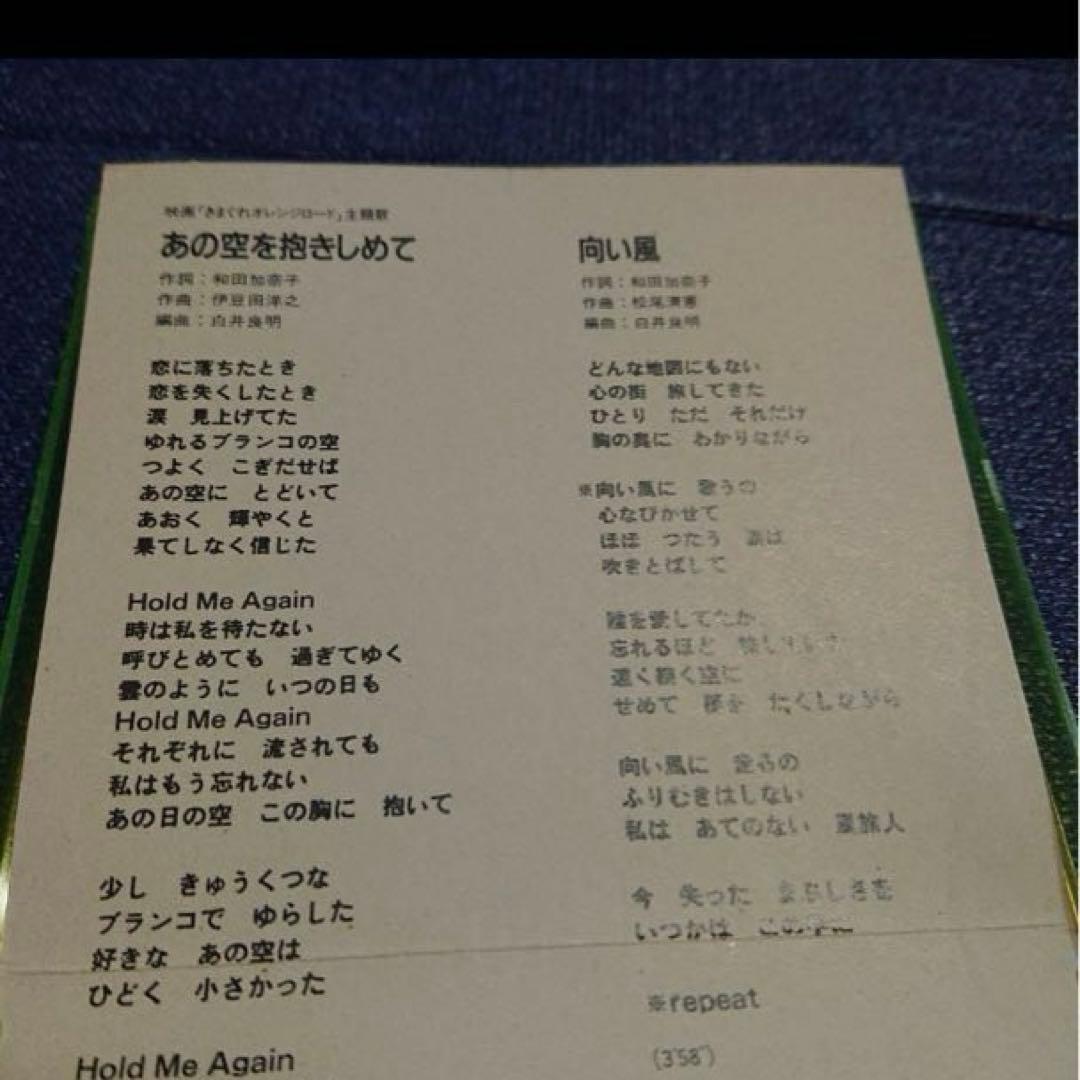 映画「きまぐれオレンジロード」主題歌
あの空を抱きしめて
作詞：和田加奈子
作曲：伊豆田洋之
編曲：白井良明
恋に落ちたとき
恋を失くしたとき
涙　見上げてた
ゆれるブランコの空
つよく　こぎだせば
あの空に　とどいて
あおく　輝やくと
果てしなく信じた
Hold Me Again
時は私を待たない
呼びとめても　過ぎてゆく
雲のように　いつの日も
Hold Me Again
それぞれに　流されても
私はもう忘れない
あの日の空　この胸に　抱いて
少し　きゅうくつな
ブランコで　ゆらした
好きな　あの空は
ひどく　小さかった
Hold Me Again
向い風
作詞：和田加奈子
作曲：松尾清憲
編曲：白井良明
どんな地図にもない
心の街　旅してきた
ひとり　ただ　それだけ
胸の奥に　わかりながら
※向い風に　歌うの
心なびかせて
ほほ　つたう　涙は
吹きとばして
誰を愛してたか
忘れるほど
遠く続く空に
せめて　夢を　たくしながら
向い風に　走るの
ふりむきはしない
私は　あてのない　夏旅人
今　失った　まぶしさを
いつかは　この手に
※repeat
(3'58")